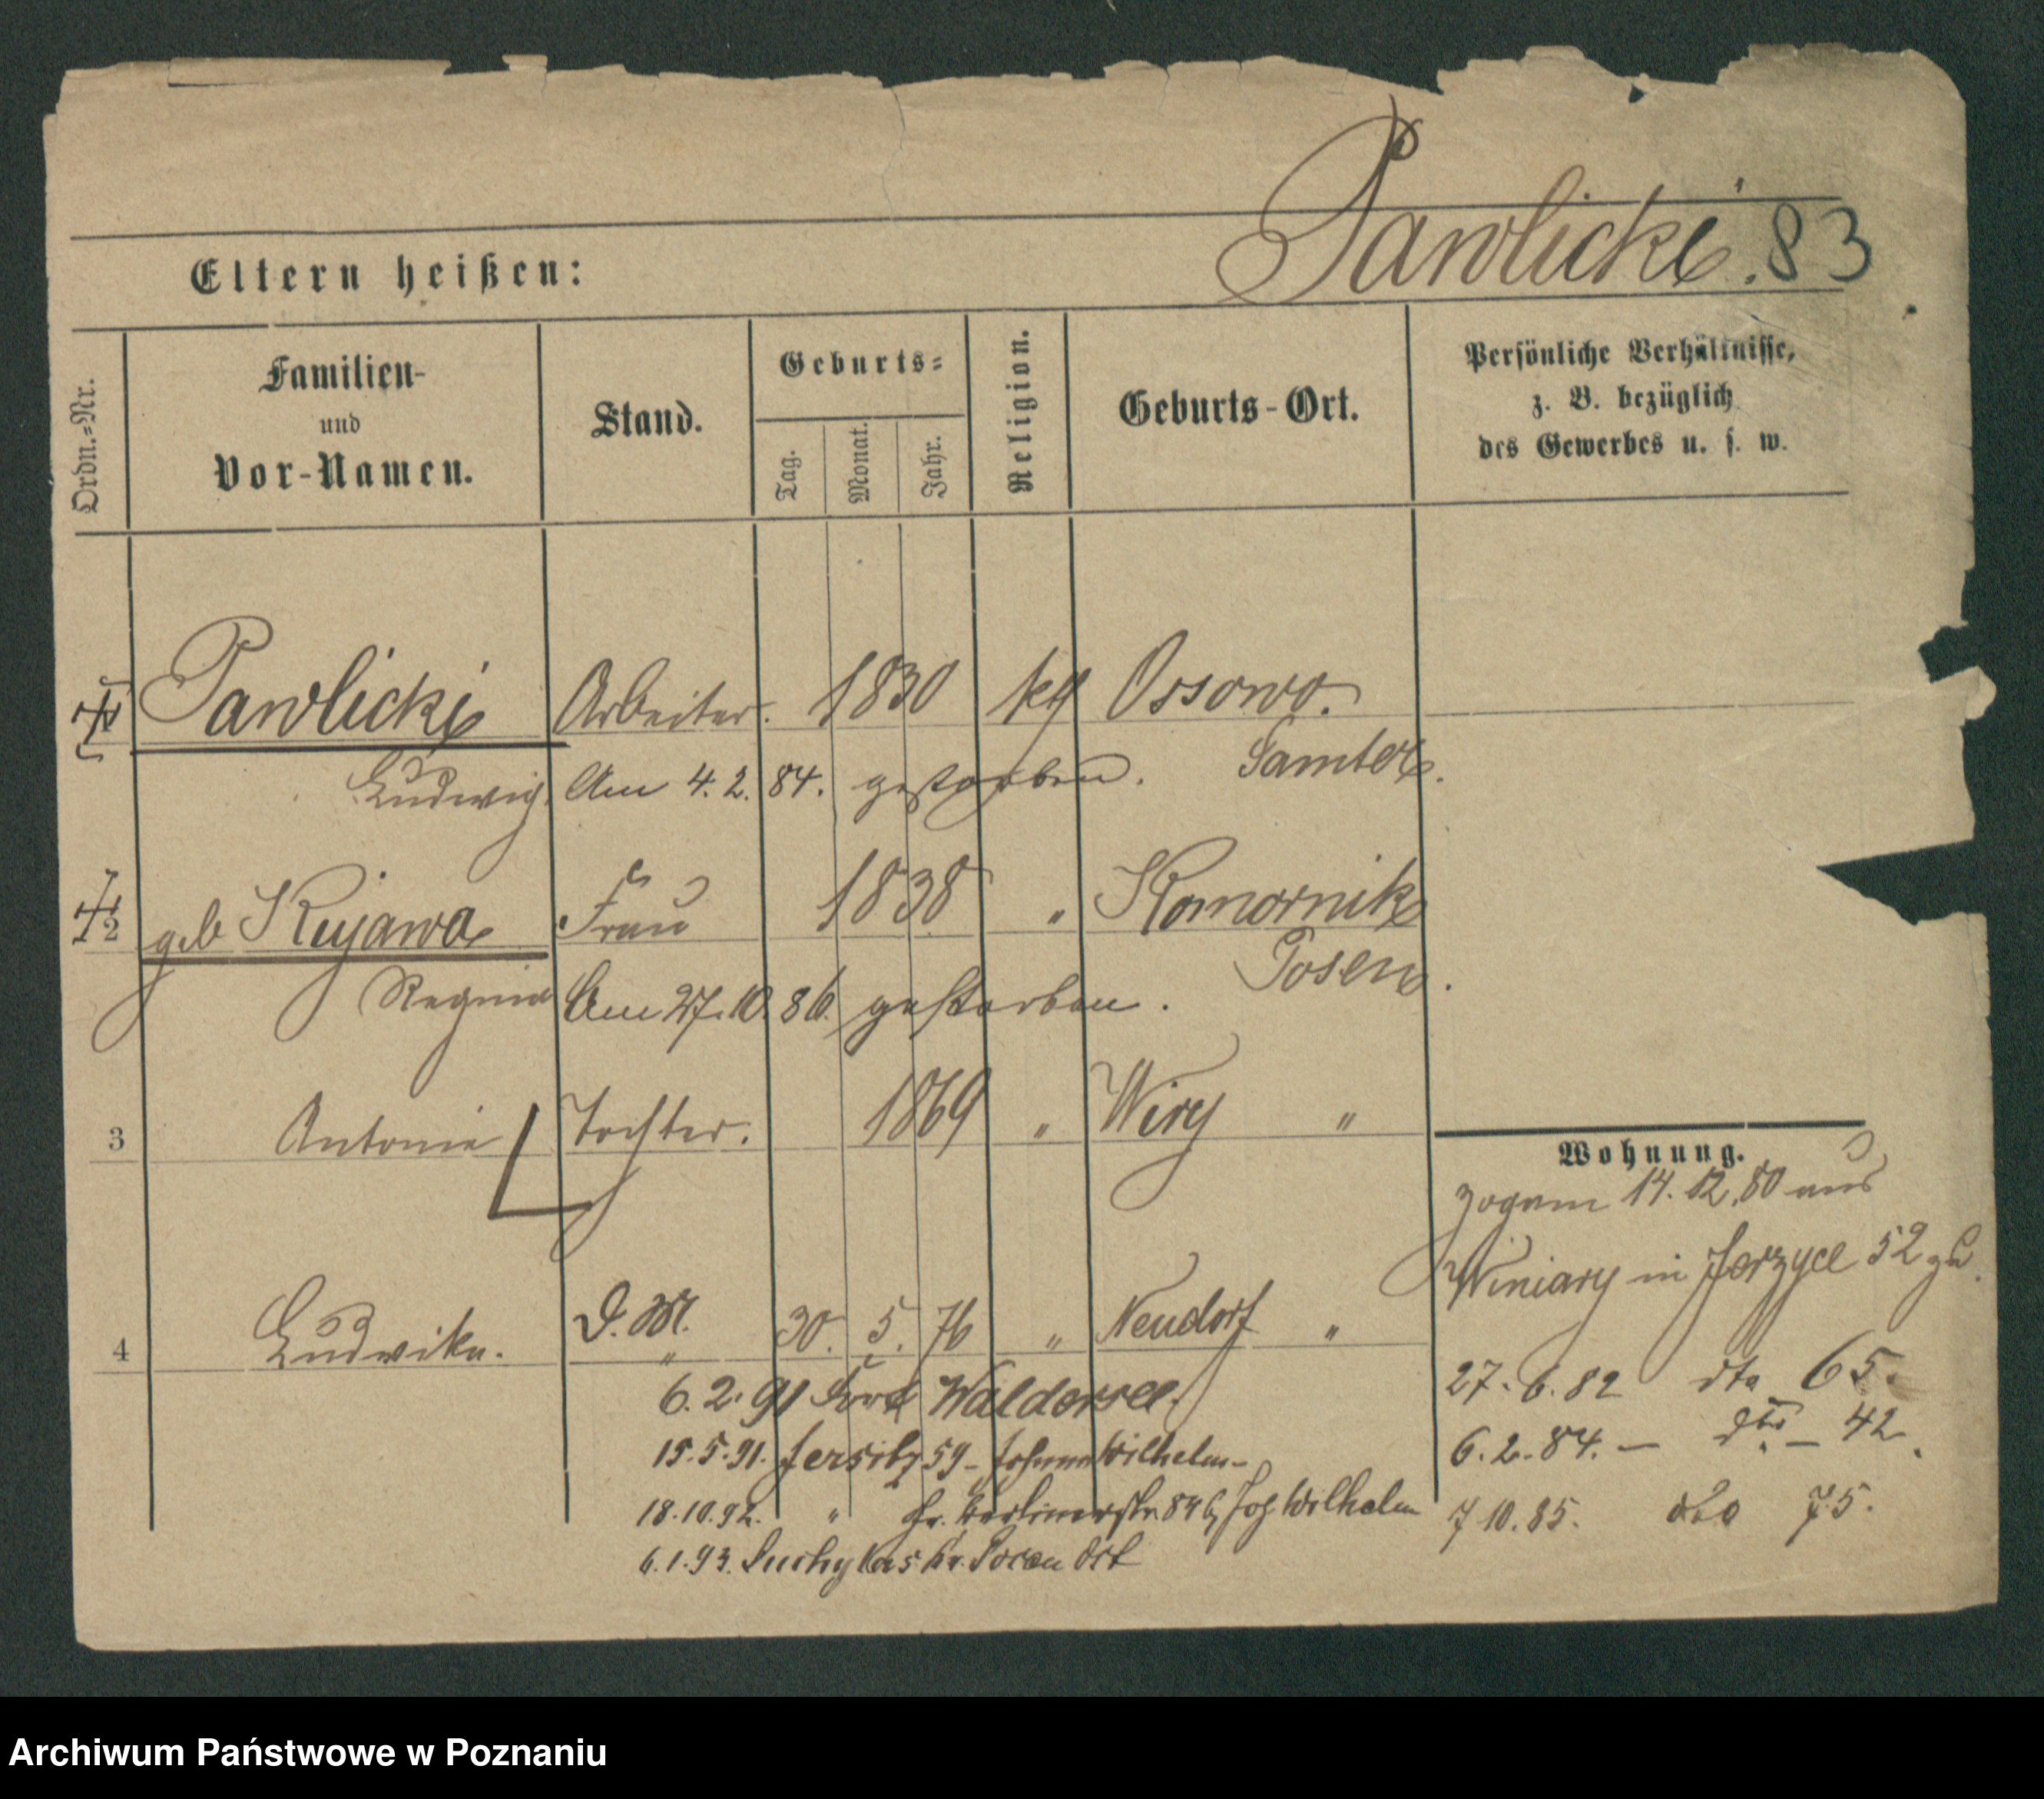 Pawlicki. 83
Eltern heißen:
Ordn.-Nr.
Familien-
und
Vor-Namen.
Stand.
Geburts-
Tag.
Monat.
Jahr.
Religion.
Geburts-Ort.
Persönliche Verhältnisse,
z. B. bezüglich
des Gewerbes u. s. w.
1 Pawlicki Arbeiter. 1830 kth Ossowo.
Ludwig. Am 4. 2. 84. gestorben. Samter.
2 geb Kujawa Frau 1838 " Komornik
Regina Am 27. 10. 86. gestorben. Posen.
3 Antonie Tochter. 1869 " Wiry "
4 Ludwika. D. M. 30. 5. 76 " Neudorf "
"
6. 2. 91 Fort Waldersee.
15. 5. 91. Jersitz 59 - Johann Wilhelm -
18. 10. 92. " Gr. Berlinerstr. 84 b, Joh Wilhelm
6. 1. 93. Suchylas Kr. Posen Ost
Wohnung.
zog am 14. 12. 80 aus
Winiary in Jerzyce 52 zu.
27. 6. 82 dto 65.
6. 2. 84. — dto — 42.
7 10. 85. dto 75.
Archiwum Państwowe w Poznaniu